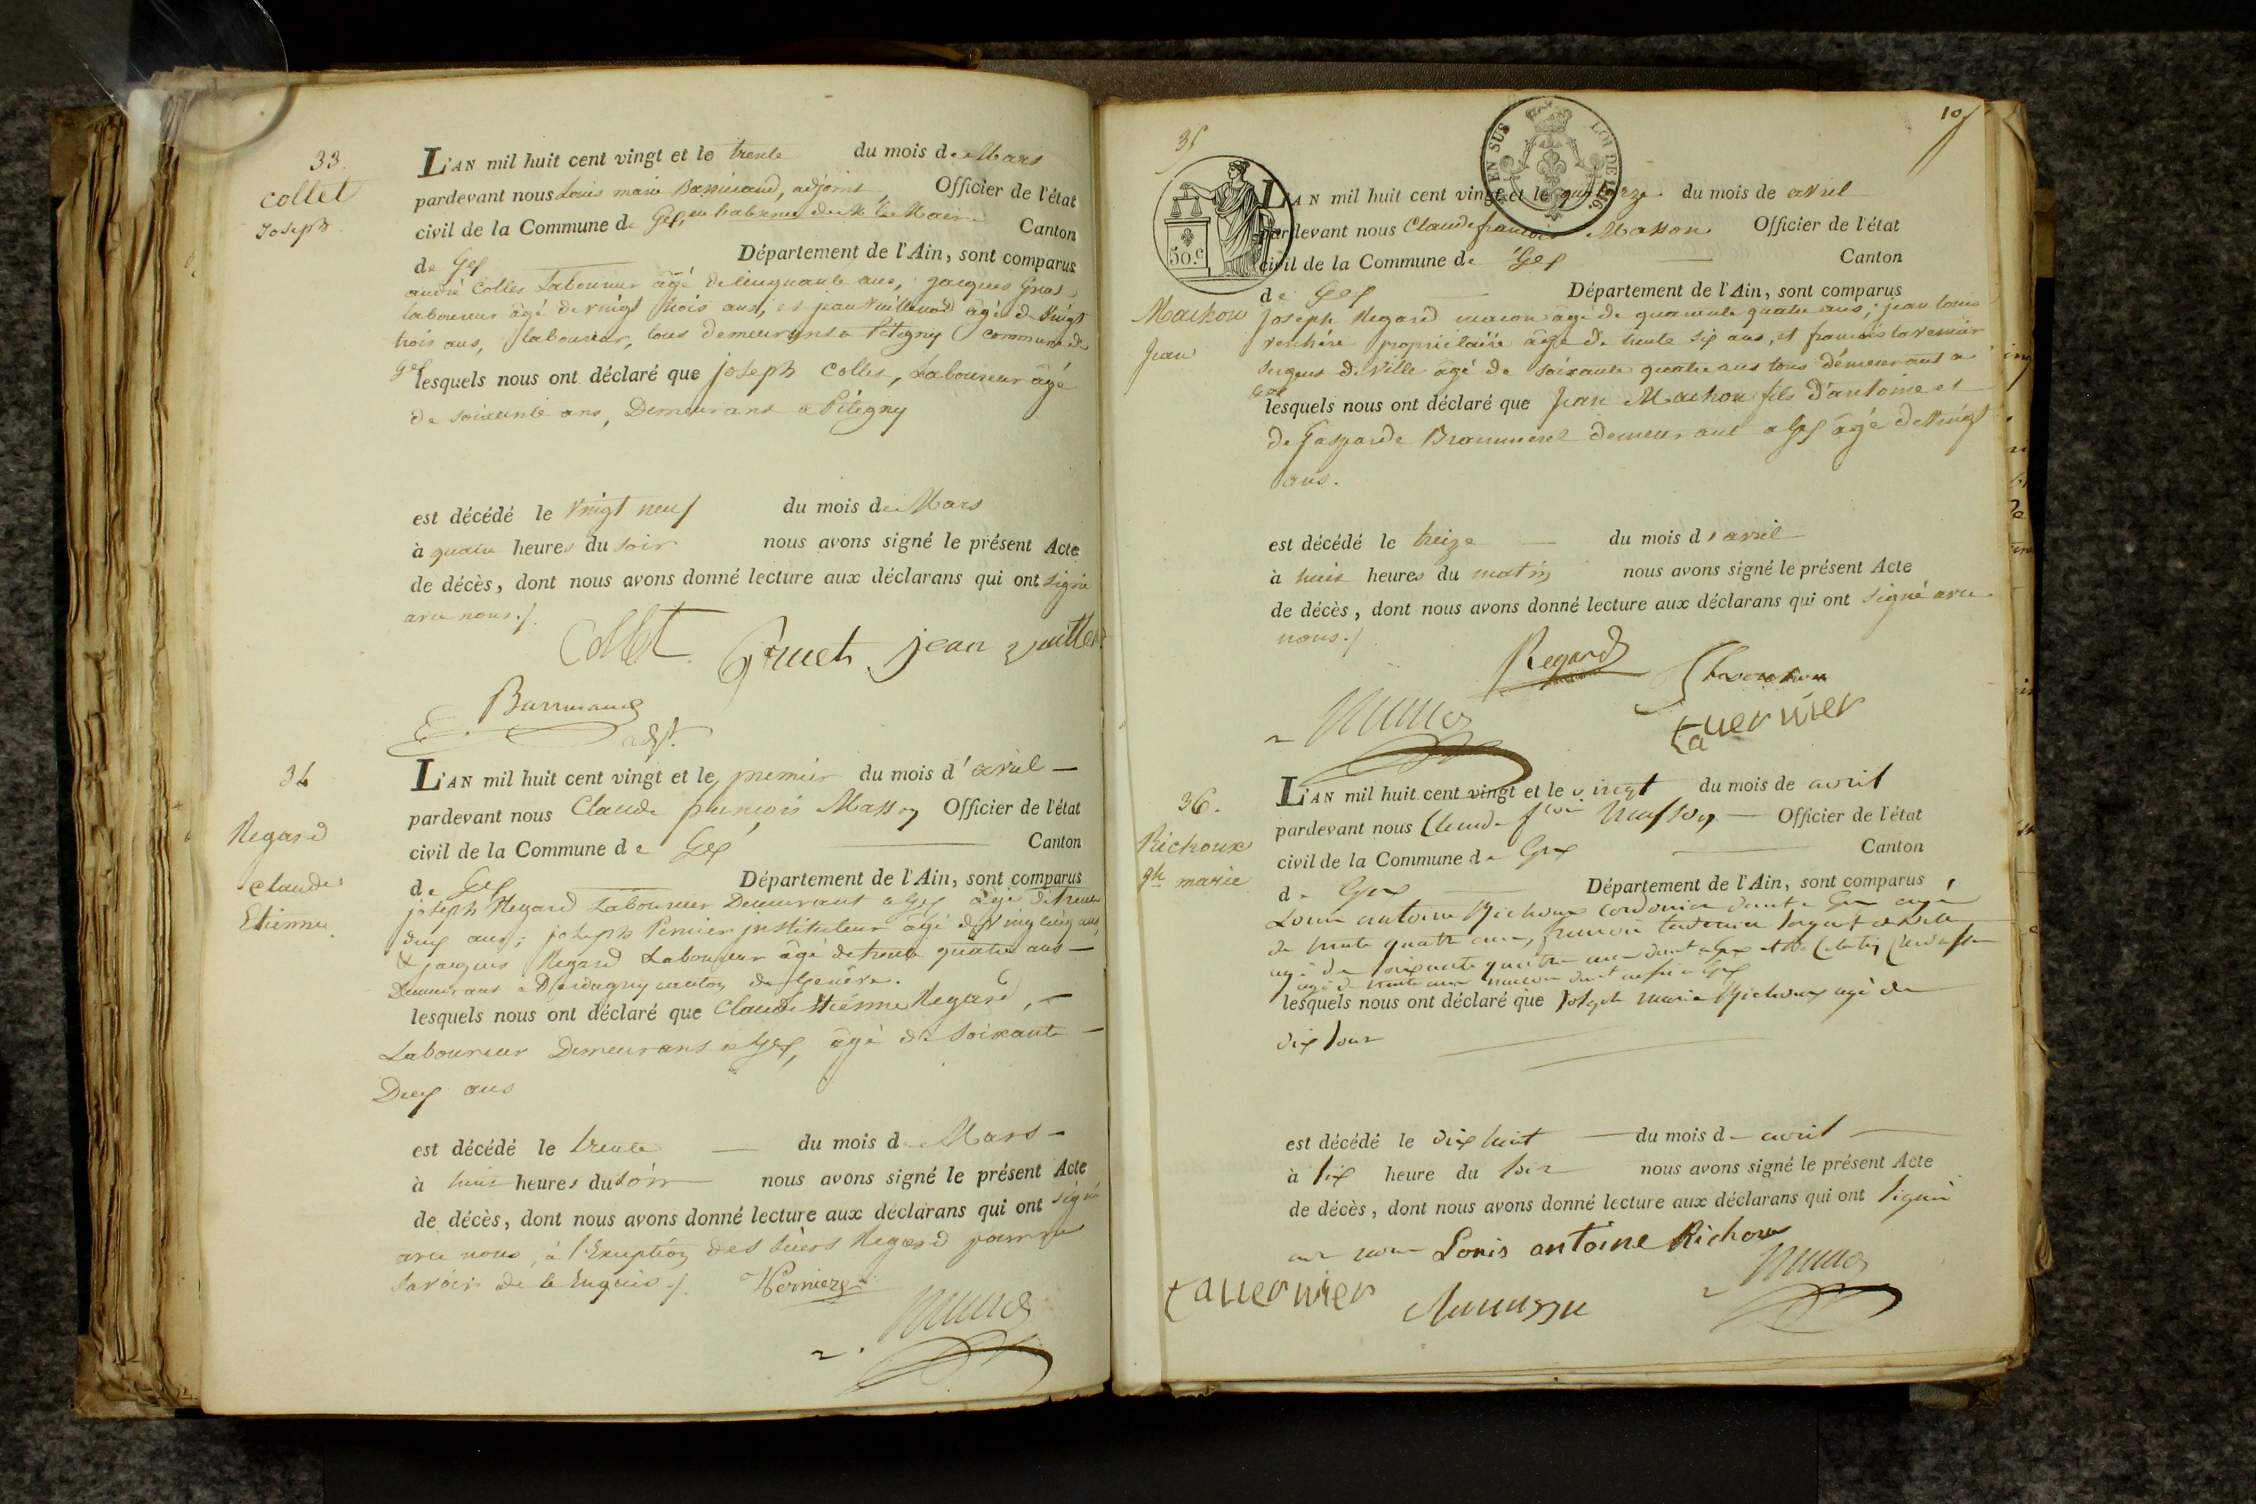 33.
Collet
Joseph.
L'AN mil huit cent vingt et le trente du mois de Mars
pardevant nous Louis marie, adjoint, Officier de l'état
civil de la Commune de Gex, en l'absence de Mr le Maire Canton
de Gex Département de l'Ain, sont comparus
andré Collet Laboureur âgé de cinquante ans, jacques
laboureur âgé de vingt trois ans, et jean Vuillemod âgé de vingt
trois ans, laboureur, tous demeurants a Pitegny commune de
Gex
lesquels nous ont déclaré que joseph Collet, Laboureur âgé
de soixante ans, Demeurant a Pitegny
est décédé le vingt neuf du mois de Mars
à quatre heures du soir nous avons signé le présent Acte
de décès, dont nous avons donné lecture aux déclarans qui ont signé
avec nous./.
Collet jean
adjt.
34
Regard
Claude
Etienne
L'AN mil huit cent vingt et le premier du mois d'avril
pardevant nous Claude francois Masson Officier de l'état
civil de la Commune de Gex Canton
de Gex Département de l'Ain, sont comparus
joseph Regard Laboureur Demeurant a Gex âgé de trente
deux ans; joseph Pernier instituteur âgé de vingt cinq ans,
& jacques Regard Laboureur âgé de trente quatre ans
Demeurant a canton de Genève.
lesquels nous ont déclaré que Claude Etienne Regard,
Laboureur Demeurant a Gex, âgé de soixante
Deux ans
est décédé le trente du mois de Mars
à huit heures du soir nous avons signé le présent Acte
de décès, dont nous avons donné lecture aux déclarans qui ont signé
avec nous, à l'Exception des sieurs Regard pour ne
savoir de ce Enquis ./.
35
EN SUS
LOI DE 1816.
50.c
10
Machon
Jean
L'AN mil huit cent vingt et le quatorze du mois de avril
pardevant nous Claude francois Masson Officier de l'état
civil de la Commune de Gex Canton
de Gex Département de l'Ain, sont comparus
joseph Regard macon âgé de quarante quatre ans; jean louis
propriétaire âgé de trente six ans, et francois tavernier
sergent de Ville âgé de soixante quatre ans tous demeurant a
Gex
lesquels nous ont déclaré que Jean Machon fils d'antoine et
de Gasparde demeurant a Gex âgé de vingt
ans.
est décédé le treize du mois d'avril
à huit heures du matin nous avons signé le présent Acte
de décès, dont nous avons donné lecture aux déclarans qui ont signé avec
nous./
Regard
tavernier
36.
Richoux
marie
L'AN mil huit cent vingt et le vingt du mois de avril
pardevant nous Claude Masson Officier de l'état
civil de la Commune de Gex Canton
de Gex Département de l'Ain, sont comparus
Louis antoine Richoux cordonier a Gex agé
de trente quatre ans, francois tavernier sergent de ville
agé de soixante quatre ans
agé de trente ans
lesquels nous ont déclaré que Joseph marie Richoux agé de
dix jour
est décédé le dix huit du mois de avril
à six heure du soir nous avons signé le présent Acte
de décès, dont nous avons donné lecture aux déclarans qui ont signé
avec nous Louis antoine Richoux
tavernier